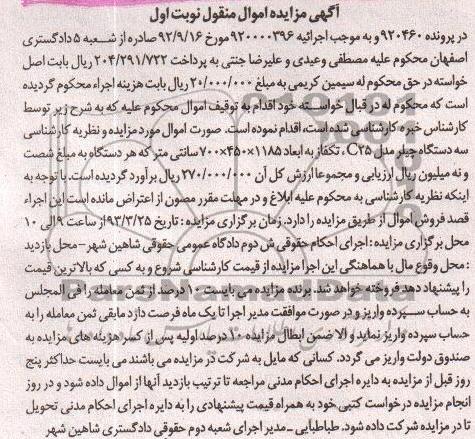 آگهی مزایده اموال منقول نوبت اول
در پرونده ۹۲۰۴۶۰ و به موجب اجرائیه ۹۲۰۰۰۰۳۹۶ مورخ ۹۲/۹/۱۶ صادره از شعبه ۵ دادگستری
اصفهان محکوم علیه مصطفی وعیدی و علیرضا جنتی به پرداخت ۲۰۴/۲۹۱/۷۲۲ ریال بابت اصل
خواسته در حق محکوم له سیمین کریمی به مبلغ ۲۰/۰۰۰/۰۰۰ ریال بابت هزینه اجراء محکوم گردیده
است که محکوم له در قبال خواسته خود اقدام به توقیف اموال محکوم علیه که به شرح زیر توسط
کارشناس خبره کارشناسی شده است، اقدام نموده است. صورت اموال مورد مزایده و نظریه کارشناسی
سه دستگاه چیلر مدل C۲۵، تکفاز به ابعاد ۱۱۸۵×۴۵۰×۷۰۰ سانتی متر که هر دستگاه به مبلغ شصت
و نه میلیون ریال ارزیابی و مجموعا ارزش کل آن ۲۷۰/۰۰۰/۰۰۰ ریال برآورد گردیده است. با توجه به
اینکه نظریه کارشناسی به محکوم علیه ابلاغ و در مهلت مقرر مصون از اعتراض مانده است این اجراء
قصد فروش اموال از طریق مزایده را دارد. زمان برگزاری مزایده : تاریخ ۹۳/۳/۲۵ از ساعت ۹ الی ۱۰
محل برگزاری مزایده : اجرای احکام حقوقی ش دوم دادگاه عمومی حقوقی شاهین شهر – محل بازدید
: محل وقوع مال با هماهنگی این اجرا مزایده از قیمت کارشناسی شروع و به کسی که بالاترین قیمت
را پیشنهاد دهد فروخته خواهد شد. برنده مزایده می بایست ۱۰ درصد از ثمن معامله را فی المجلس
به حساب سپرده واریز و در صورت موافقت مدیر اجرا تا یک ماه فرصت دارد مابقی ثمن معامله را به
حساب سپرده واریز نماید و الا ضمن ابطال مزایده ۱۰ درصد اولیه پس از کسر هزینه های مزایده به
صندوق دولت واریز می گردد. کسانی که مایل به شرکت در مزایده می باشند می بایست حداکثر پنج
روز قبل از مزایده به دایره اجرای احکام مدنی مراجعه تا ترتیب بازدید آنها از اموال داده شود و در روز
انجام مزایده درخواست کتبی خود به همراه قیمت پیشنهادی را به دایره اجرای احکام مدنی تحویل
تا در مزایده شرکت داده شود. طباطبایی – مدیر اجرای شعبه دوم حقوقی دادگستری شاهین شهر
ParsNamadData